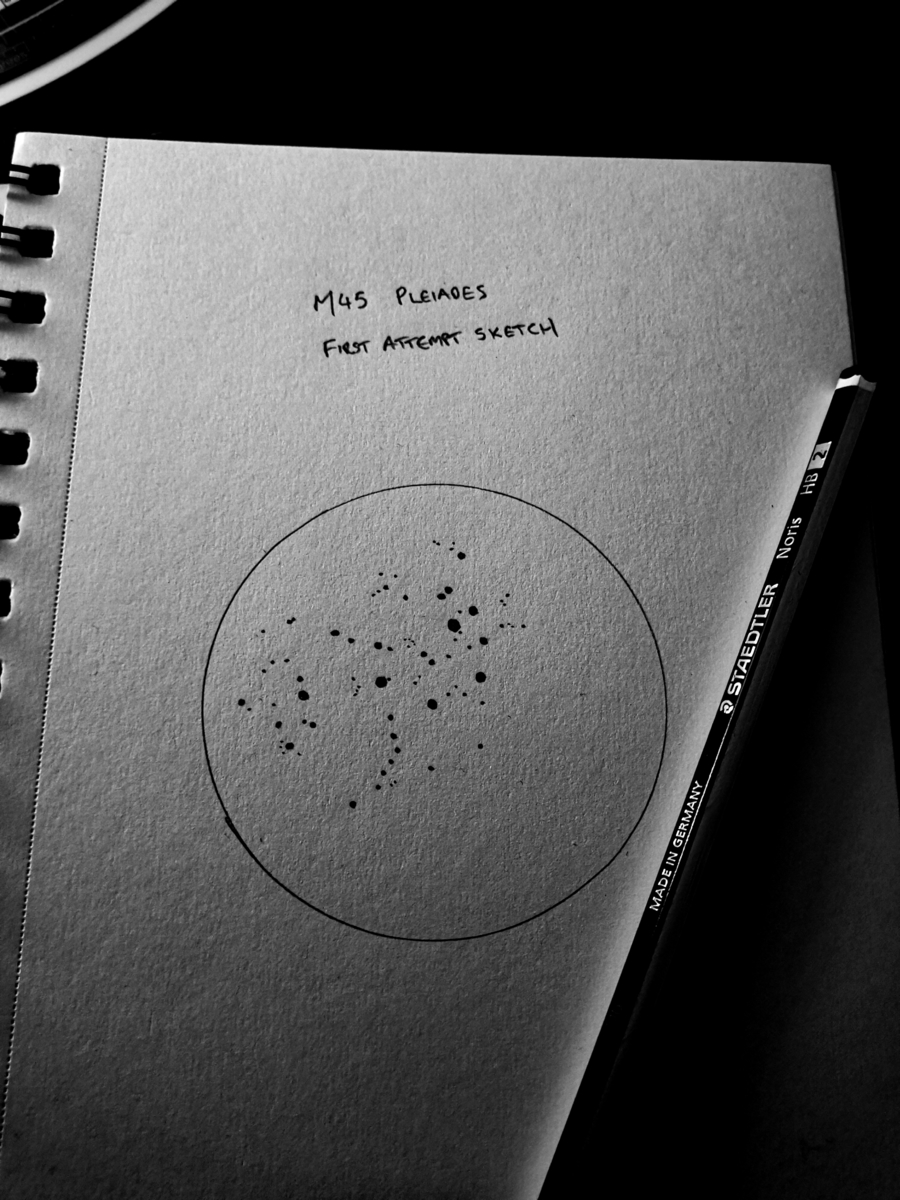 M45 PLEIADES
FIRST ATTEMPT SKETCH
MADE IN GERMANY STAEDTLER Noris HB 2